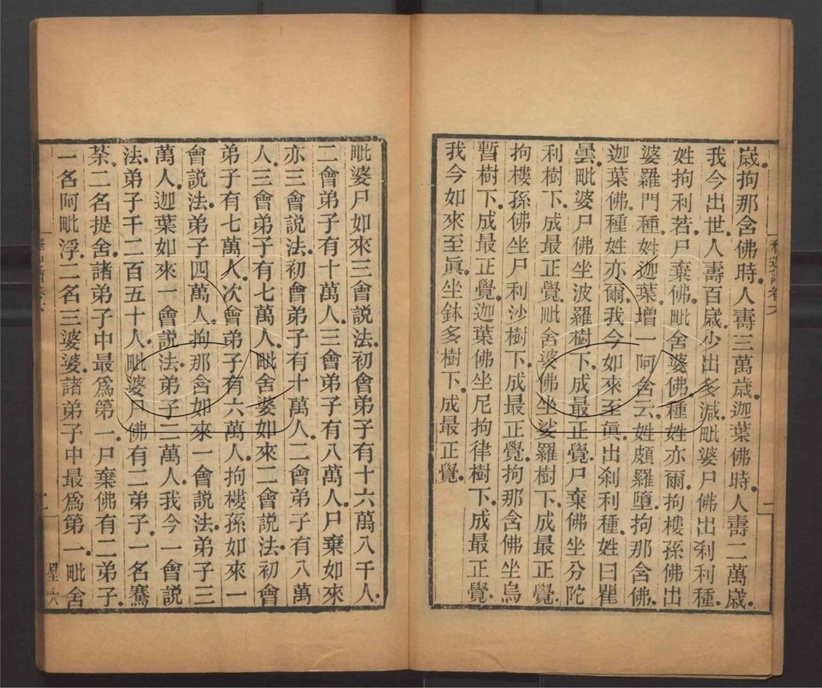 歲拘那含佛時人壽三萬歲迦葉佛時人壽二萬歲
我今出世人壽百歲少出多減毗婆尸佛出刹利種
姓拘利若尸棄佛毗舍婆佛種姓亦爾拘樓孫佛出
婆羅門種姓迦葉增一阿含云姓頗羅墮拘那含佛
迦葉佛種姓亦爾我今如來至眞出刹利種姓曰瞿
曇毗婆尸佛坐波羅樹下成最正覺尸棄佛坐分陀
利樹下成最正覺毗舍婆佛坐娑羅樹下成最正覺
拘樓孫佛坐尸利沙樹下成最正覺拘那含佛坐烏
暫樹下成最正覺迦葉佛坐尼拘律樹下成最正覺
我今如來至眞坐鉢多樹下成最正覺
毗婆尸如來三會說法初會弟子有十六萬八千人
二會弟子有十萬人三會弟子有八萬人尸棄如來
亦三會說法初會弟子有十萬人二會弟子有八萬
人三會弟子有七萬人毗舍婆如來二會說法初會
弟子有七萬人次會弟子有六萬人拘樓孫如來一
會說法弟子四萬人拘那含如來一會說法弟子三
萬人迦葉如來一會說法弟子二萬人我今一會說
法弟子千二百五十人毗婆尸佛有二弟子一名騫
荼二名提舍諸弟子中最爲第一尸棄佛有二弟子
一名阿毗浮二名三婆婆諸弟子中最爲第一毗舍